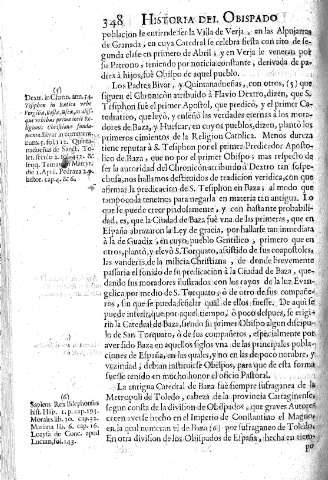 348 HISTORIA DEL OBISPADO
poblacion se entiende ser la Villa de Verja, en las Alpujarras
de Granada, en cuya Catedral se celebra fiesta con rito de se-
gunda clase en primero de Abril; y en Verja le veneran por
su Patrono, teniendo por noticia constante, derivada de pa-
dres à hijos, fuè Obispo de aquel pueblo.
Los Padres Bivar, y Quintanadueñas, con otros, (5) que
siguen el Chronicon atribuìdo à Flavio Dextro, dizen, que S.
Tesiphon fuè el primer Apostol, que predicò, y el primer Ca-
tedratico, que leyò, y enseñò las verdades eternas à los mora-
dores de Baza, y Huescar; en cuyos pueblos, dizen, plantò los
primeros cimientos de la Religion Catolica. Menos dureza
tiene reputar à S. Tesiphon por el primer Predicador Aposto-
lico de Baza, que no por el primer Obispo; mas respecto de
ser la autoridad del Chronicon atribuìdo à Dextro tan dudo-
sa, nos hallamos destituìdos de tradicion veridica, con que
afirmar la predicacion de S. Tesiphon en Baza; al modo que
tampoco la tenemos para negarla en materia tan antigua. Lo
que se puede creer piadosamente, y con bastante probabili-
dad, es, que la Ciudad de Baza fuè una de las primeras, que en
España abrazaron la Ley de gracia, por hallarse tan inmediata
à la de Guadix, en cuyo pueblo Gentilico, primero que en
otro, plantò, y elevò S. Torquato, asistido de sus compañeros,
las vanderas de la milicia Christiana, de donde brevemente
passaria el sonido de su predicacion à la Ciudad de Baza, que-
dando sus moradores ilustrados con los rayos de la luz Evan-
gelica por medio de S. Torquato, ò de otro de sus compañe-
ros, sin que se pueda dezir qual de ellos fuesse. De aqui se
puede inferir, que por aquel tiempo, ò poco despues, se erigi-
ria la Catedral de Baza, siendo su primer Obispo algun discipu-
lo de San Torquato, ò de sus compañeros, especialmente por
aver sido Baza en aquellos siglos una de las principales pobla-
ciones de España, en las quales, y no en las de poco nombre, y
vezindad, debian instituirse Obispos, para que de esta forma
fuesse tenido en mucho honor el oficio Pastoral.
La antigua Catedral de Baza fuè siempre sufraganea de la
Metropoli de Toledo, cabeza de la provincia Cartaginense,
segun consta de la division de Obispados, que graves Autores
creen averse hecho en el Imperio de Constantino el Magno,
en la qual numeran el de Baza (6) por sufraganeo de Toledo.
En otra division de los Obispados de España, hecha en tiem-
po
(5)
Dext. in Chron. ann. 54.
Tesiphon in Bætica urbe
Vergilia, Basta,
(6)
Sapiens Rex Ildephonsus
hist. Hisp. 1. p. cap. 193.
Morales lib. 10. cap. 32.
Mariana lib. 6. cap. 16.
Loaysa de Conc. apud
Lucum, fol. 143.